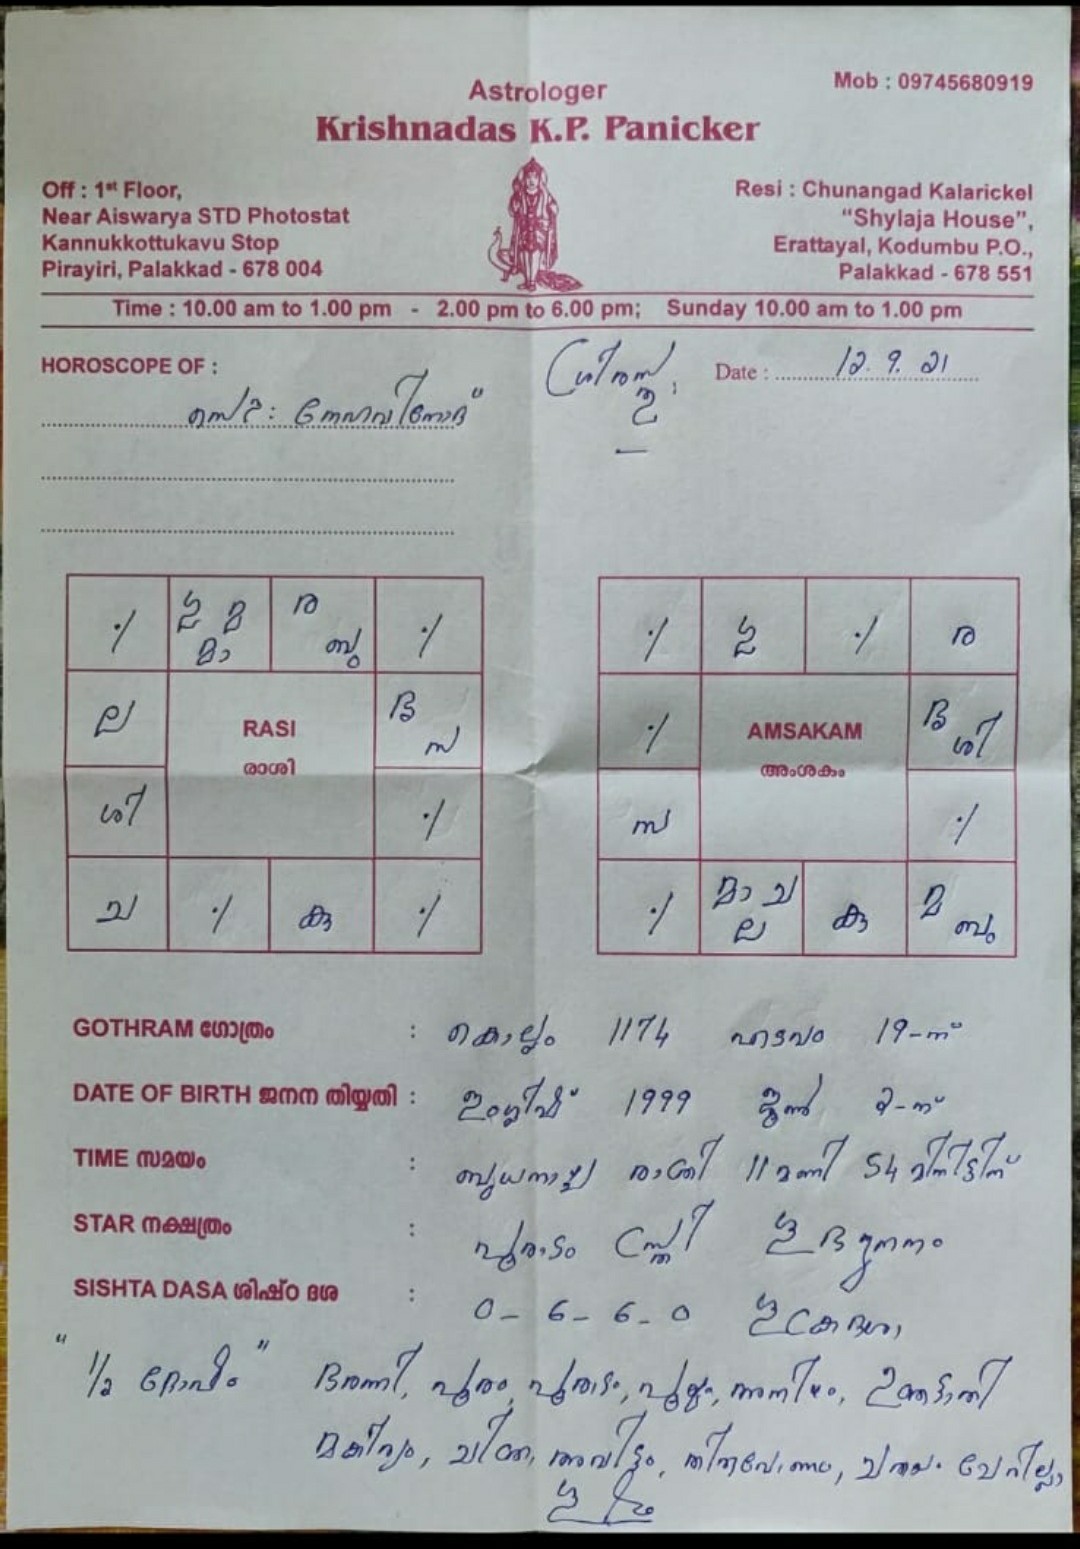 Astrologer
Mob : 09745680919
Krishnadas K.P. Panicker
Off : 1st Floor,
Near Aiswarya STD Photostat
Kannukkottukavu Stop
Pirayiri, Palakkad - 678 004
Resi : Chunangad Kalarickel
“Shylaja House”,
Erattayal, Kodumbu P.O.,
Palakkad - 678 551
Time : 10.00 am to 1.00 pm - 2.00 pm to 6.00 pm; Sunday 10.00 am to 1.00 pm
HOROSCOPE OF :
Date : 12. 9. 21
ഗു മ
മാ
ര
ബു
ല
RASI
രാശി
സ
ശി
ച
കു
ഗു
ര
AMSAKAM
അംശകം
ശി
സ
മാ ച
ല
കു
മ
ബു
GOTHRAM ഗോത്രം : കൊല്ലം 1174 ഇടവം 19-ന്
DATE OF BIRTH ജനന തിയ്യതി : ഇംഗ്ലീഷ് 1999 ജൂൺ 2-ന്
TIME സമയം : ബുധനാഴ്ച രാത്രി 11 മണി 54 മിനിട്ടിന്
STAR നക്ഷത്രം : പൂരാടം സ്ത്രീ
SISHTA DASA ശിഷ്ഠ ദശ : 0 - 6 - 6 - 0
" 1/2 ദോഷം " ഭരണി, പൂരം, പൂരാടം, പൂയ്യം, അനിഴം, ഉത്രട്ടാതി
മകീര്യം, ചിത്ര, അവിട്ടം, തിരുവോണം, ചതയം ചേരില്ലാ